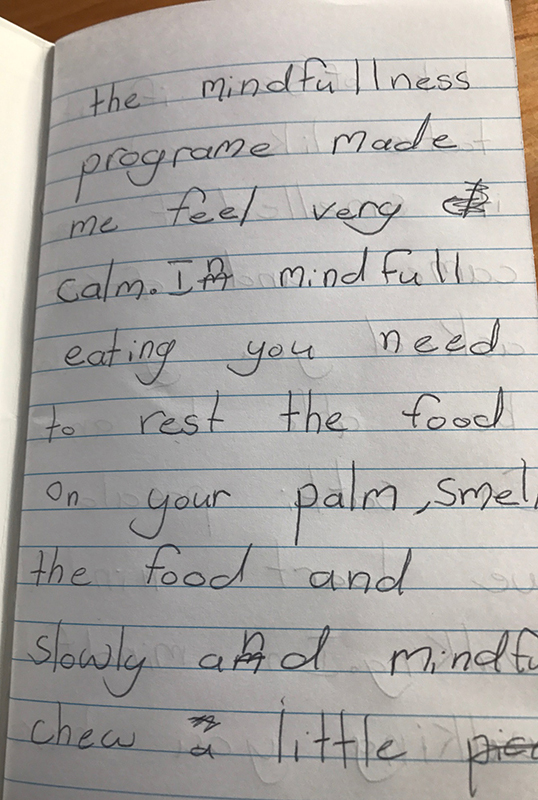 the mindfullness
programe made
me feel very
calm. In mindfull
eating you need
to rest the food
on your palm, smel
the food and
slowly and mindfu
chew a little